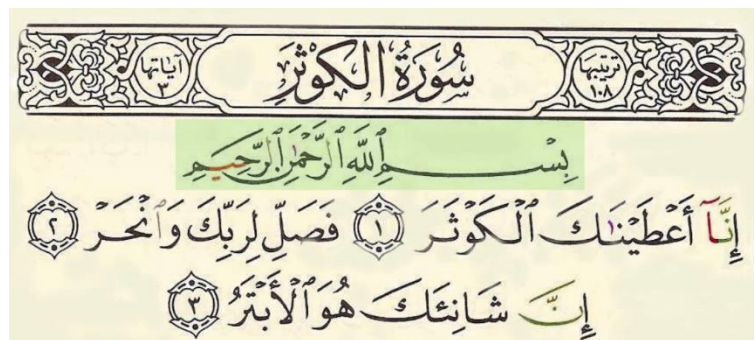 ترتيبها ١٠٨ سُورَةُ الْكَوْثَرِ آياتها ٣
بِسْمِ ٱللَّهِ ٱلرَّحْمَٰنِ ٱلرَّحِيمِ
إِنَّآ أَعْطَيْنَٰكَ ٱلْكَوْثَرَ ١ فَصَلِّ لِرَبِّكَ وَٱنْحَرْ ٢
إِنَّ شَانِئَكَ هُوَ ٱلْأَبْتَرُ ٣